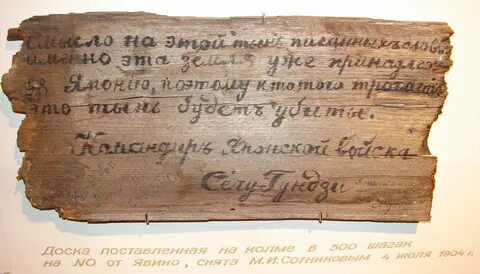 Смысло на этой тынь писанныхъ словъ
именно эта земля уже принадле
Японию, поэтому ктотого трогаетъ
это тынь будетъ убиты.
Командиръ Японской войска
Сечу-Гундзи
Доска поставленная на холме в 500 шагах
на NO от Явино, снята М.И.Сотниковым 4 июля 1904 г.